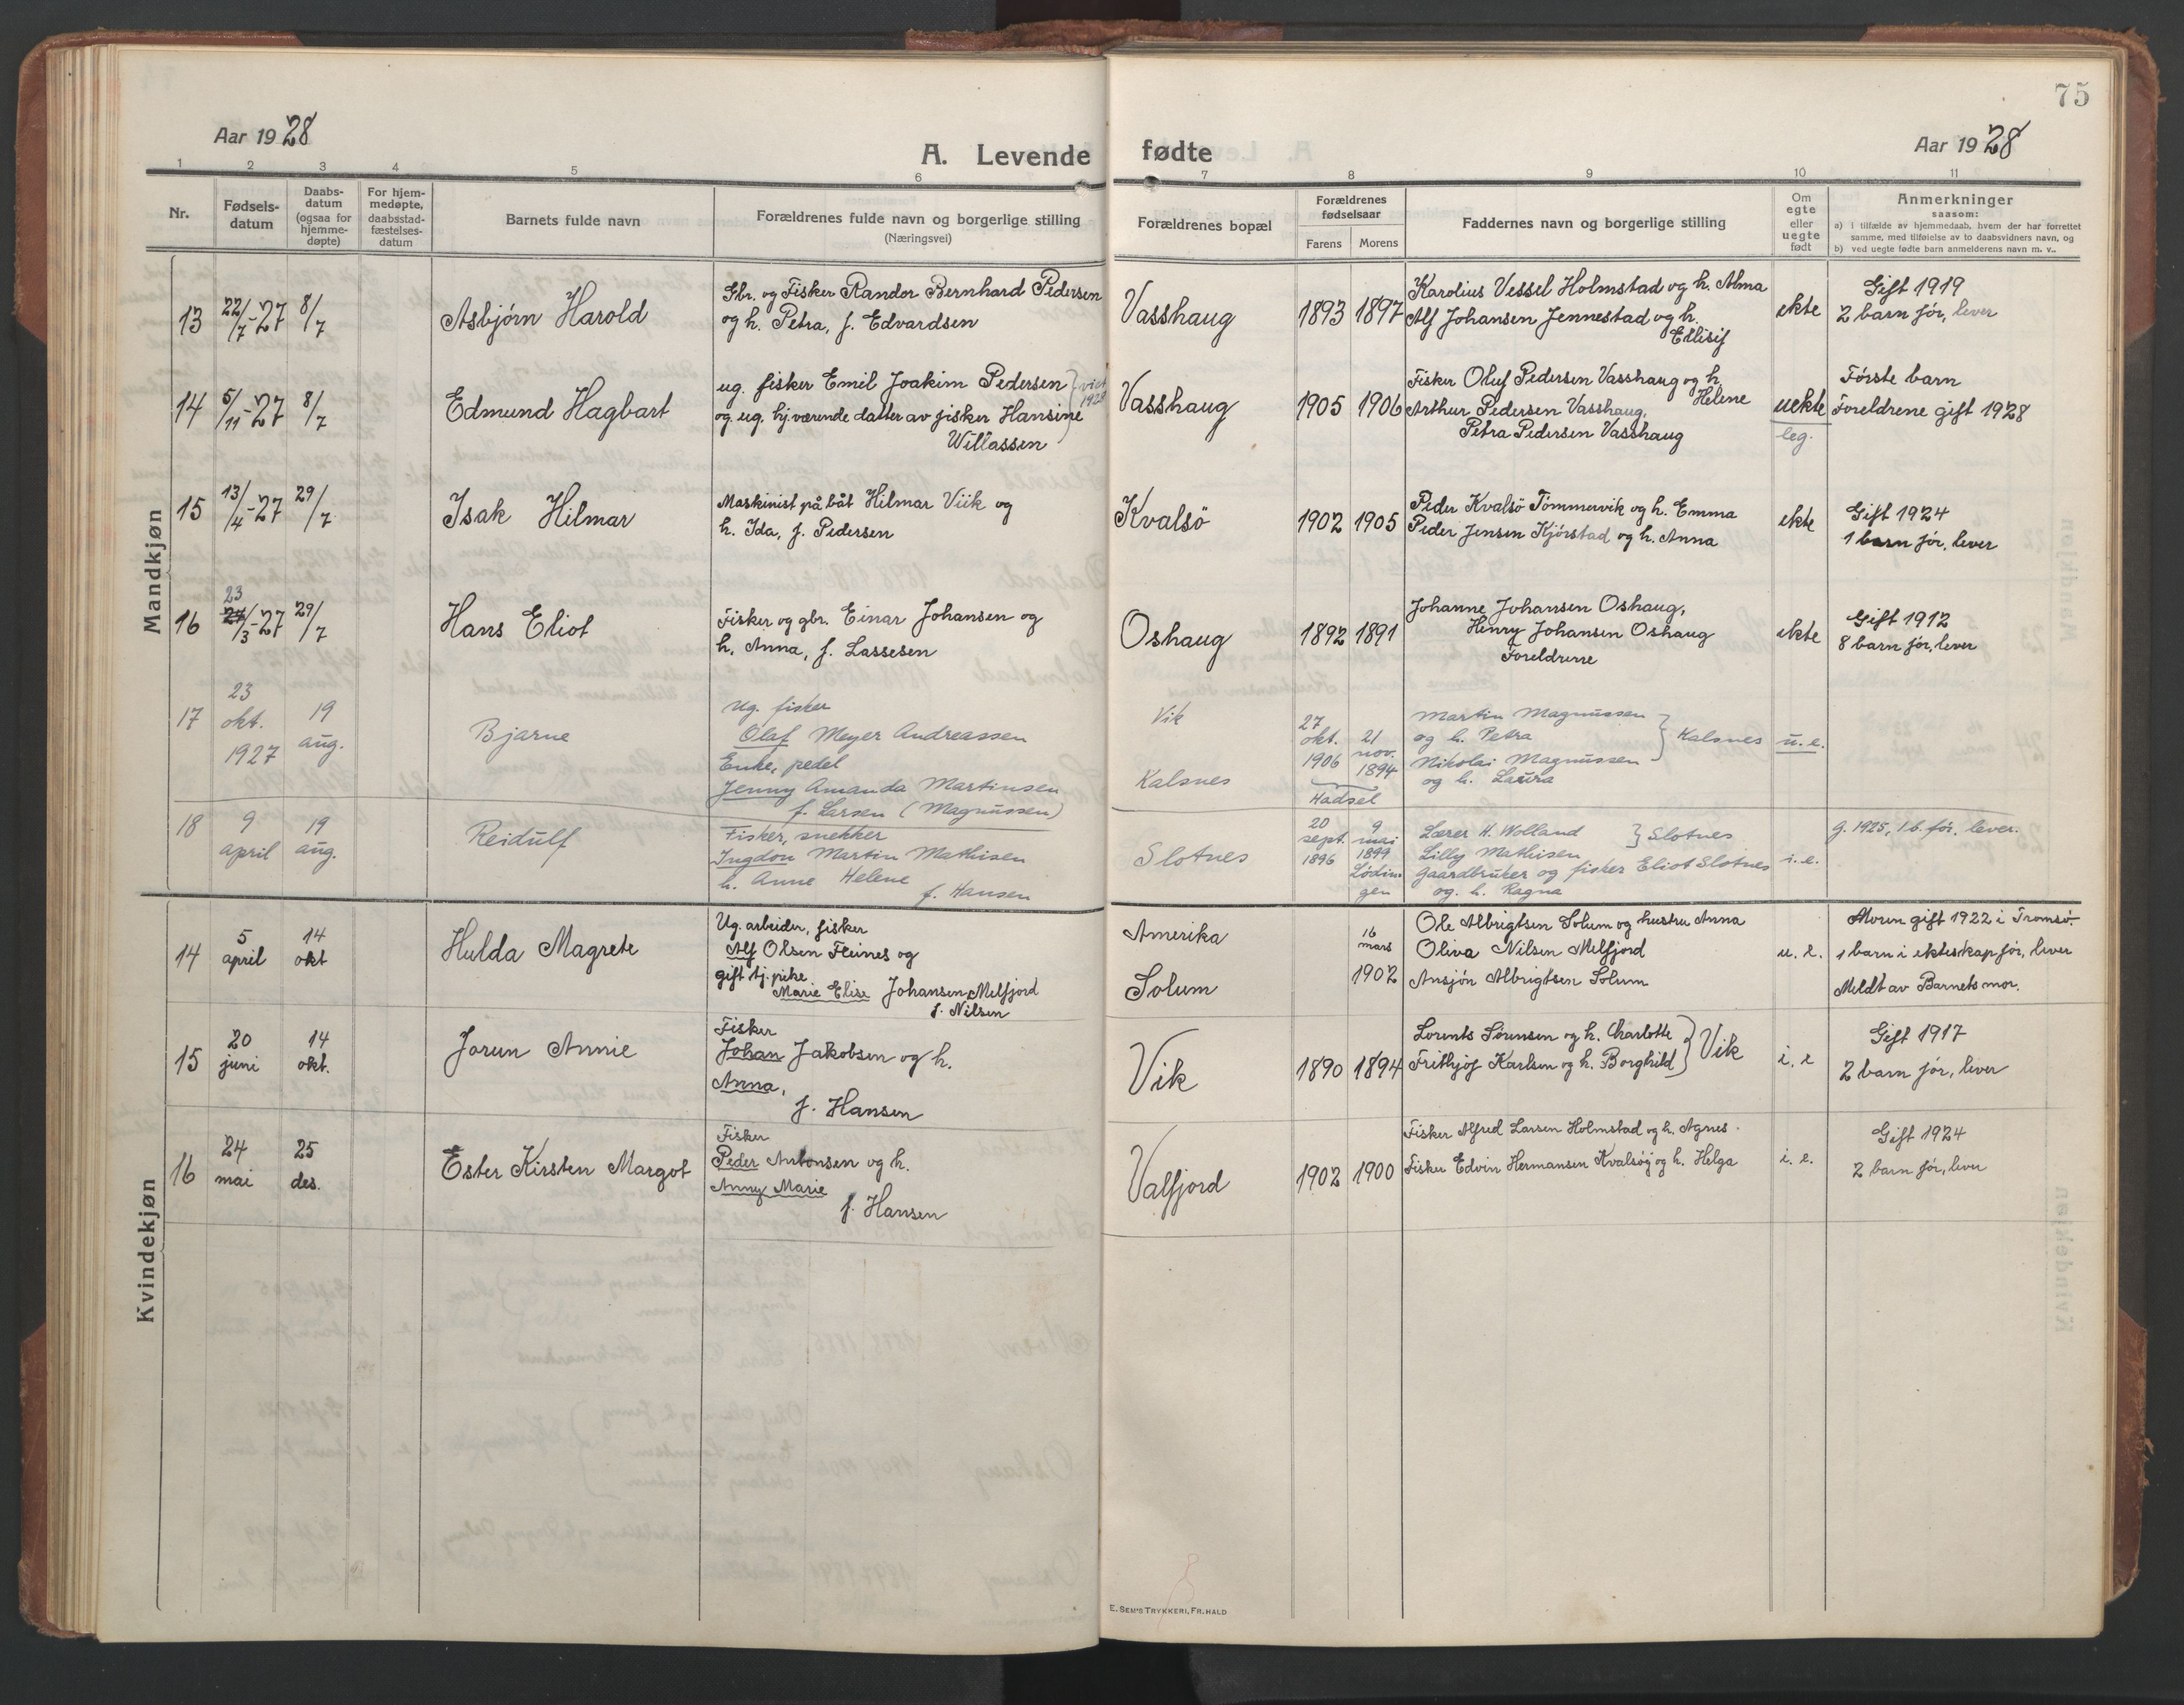 Aar 1928
A. Levende fødte
Aar 1928
75
1 2 3 4 5 6 7 8 9 10 11
Nr.
Fødsels-
datum
Daabs-
datum
(ogsaa for
hjemme-
døpte)
For hjem-
medøpte,
daabsstad-
fæstelses-
datum
Barnets fulde navn
Forældrenes fulde navn og borgerlige stilling
(Næringsvei)
Forældrenes bopæl
Forældrenes
fødselsaar
Farens
Morens
Faddernes navn og borgerlige stilling
Om
egte
eller
uegte
født
Anmerkninger
saasom:
a) i tilfælde av hjemmedaab, hvem der har forrettet
samme, med tilføielse av to daabsvidners navn, og
b) ved uegte fødte barn anmelderens navn m. v..
Mandkjøn
13
22/7-27
8/7
Asbjørn Harold
Gbr. og Fisker Randor Bernhard Pedersen
og h. Petra, f. Edvardsen
Vasshaug
1893
1897
Karolius Vessel Holmstad og h. Alma
Alf Johansen Jennestad og h.
Ellisif
ekte
Gift 1919
2 barn før, lever
14
5/11-27
8/7
Edmund Hagbart
ug. fisker Emil Joakim Pedersen
og ug. hj.værende datter av fisker Hansine
Willassen
} viet
1928
Vasshaug
1905
1906
Fisker Oluf Pedersen Vasshaug og h.
Helene
Arthur Pedersen Vasshaug,
Petra Pedersen Vasshaug
uekte
leg.
Første barn
Foreldrene gift 1928
15
13/4-27
29/7
Isak Hilmar
Maskinist på båt Hilmar Viik og
h. Ida, f. Pedersen
Kvalsö
1902
1905
Peder Kvalsö Tömmervik og h. Emma
Peder Jensen Kjörstad og h. Anna
ekte
Gift 1924
1 barn før, lever
16
23
24/3-27
29/7
Hans Eliot
Fisker og gbr. Einar Johansen og
h. Anna, f. Lassesen
Oshaug
1892
1891
Johanne Johansen Oshaug,
Henry Johansen Oshaug
Foreldrene
ekte
Gift 1912
8 barn før, lever
17
23
okt.
1927
19
aug.
Bjarne
Ug. fisker
Olaf Meyer Andreassen
Enke, pedel
Jenny Amanda Martinsen
f. Larsen (Magnussen)
Vik
Kalsnes
27
okt.
1906
21
nov.
1894
Hadsel
Martin Magnussen
og h. Petra
Nikolai Magnussen
og h. Laura
} Kalsnes
u.e.
18
9
april
19
aug.
Reidulf
Fisker, snekker
Ingdon Martin Mathisen
h. Anne Helene
f. Hansen
Slotnes
20
sept.
1896
9
mai
1899
Lødin-
gen
Lærer H. Wolland
Lilly Mathisen
} Slotnes
Gaardbruker og fisker Eliot Slotnes
og h. Ragna
i.e.
g. 1925, 1 b. før, lever.
Kvindekjøn
14
5
april
14
okt
Hulda Magrete
Ug. arbeider, fisker
Alf Olsen Fleines og
gift tj.pike
Marie Elise Johansen, Melfjord
f. Nilsen
Amerika
Solum
16
mars
1902
Ole Albrigtsen Solum og hustru Anna
Oliva Nilsen Melfjord
Ansjön Albrigtsen Solum
u. e.
Moren gift 1922 i Tromsö
1 barn i ekteskap før, lever
Meldt av Barnets mor.
15
20
juni
14
okt.
Jorun Annie
Fisker
Johan Jakobsen og h.
Anna,
f. Hansen
Vik
1890
1894
Lorents Sørensen og h. Charlotte
Frithjof Karlsen og h. Borghild
} Vik
i. e
Gift 1917
2 barn før, lever
16
24
mai
25
des.
Ester Kirsten Margot
Fisker
Peder Antonsen og h.
Anny Marie
f. Hansen
Valfjord
1902
1900
Fisker Alfred Larsen Holmstad og h. Agnes.
Fisker Edvin Hermansen Kvalsö og h. Helga
i. e.
Gift 1924
2 barn før, lever
E. SEM'S TRYKKERI, FR.HALD